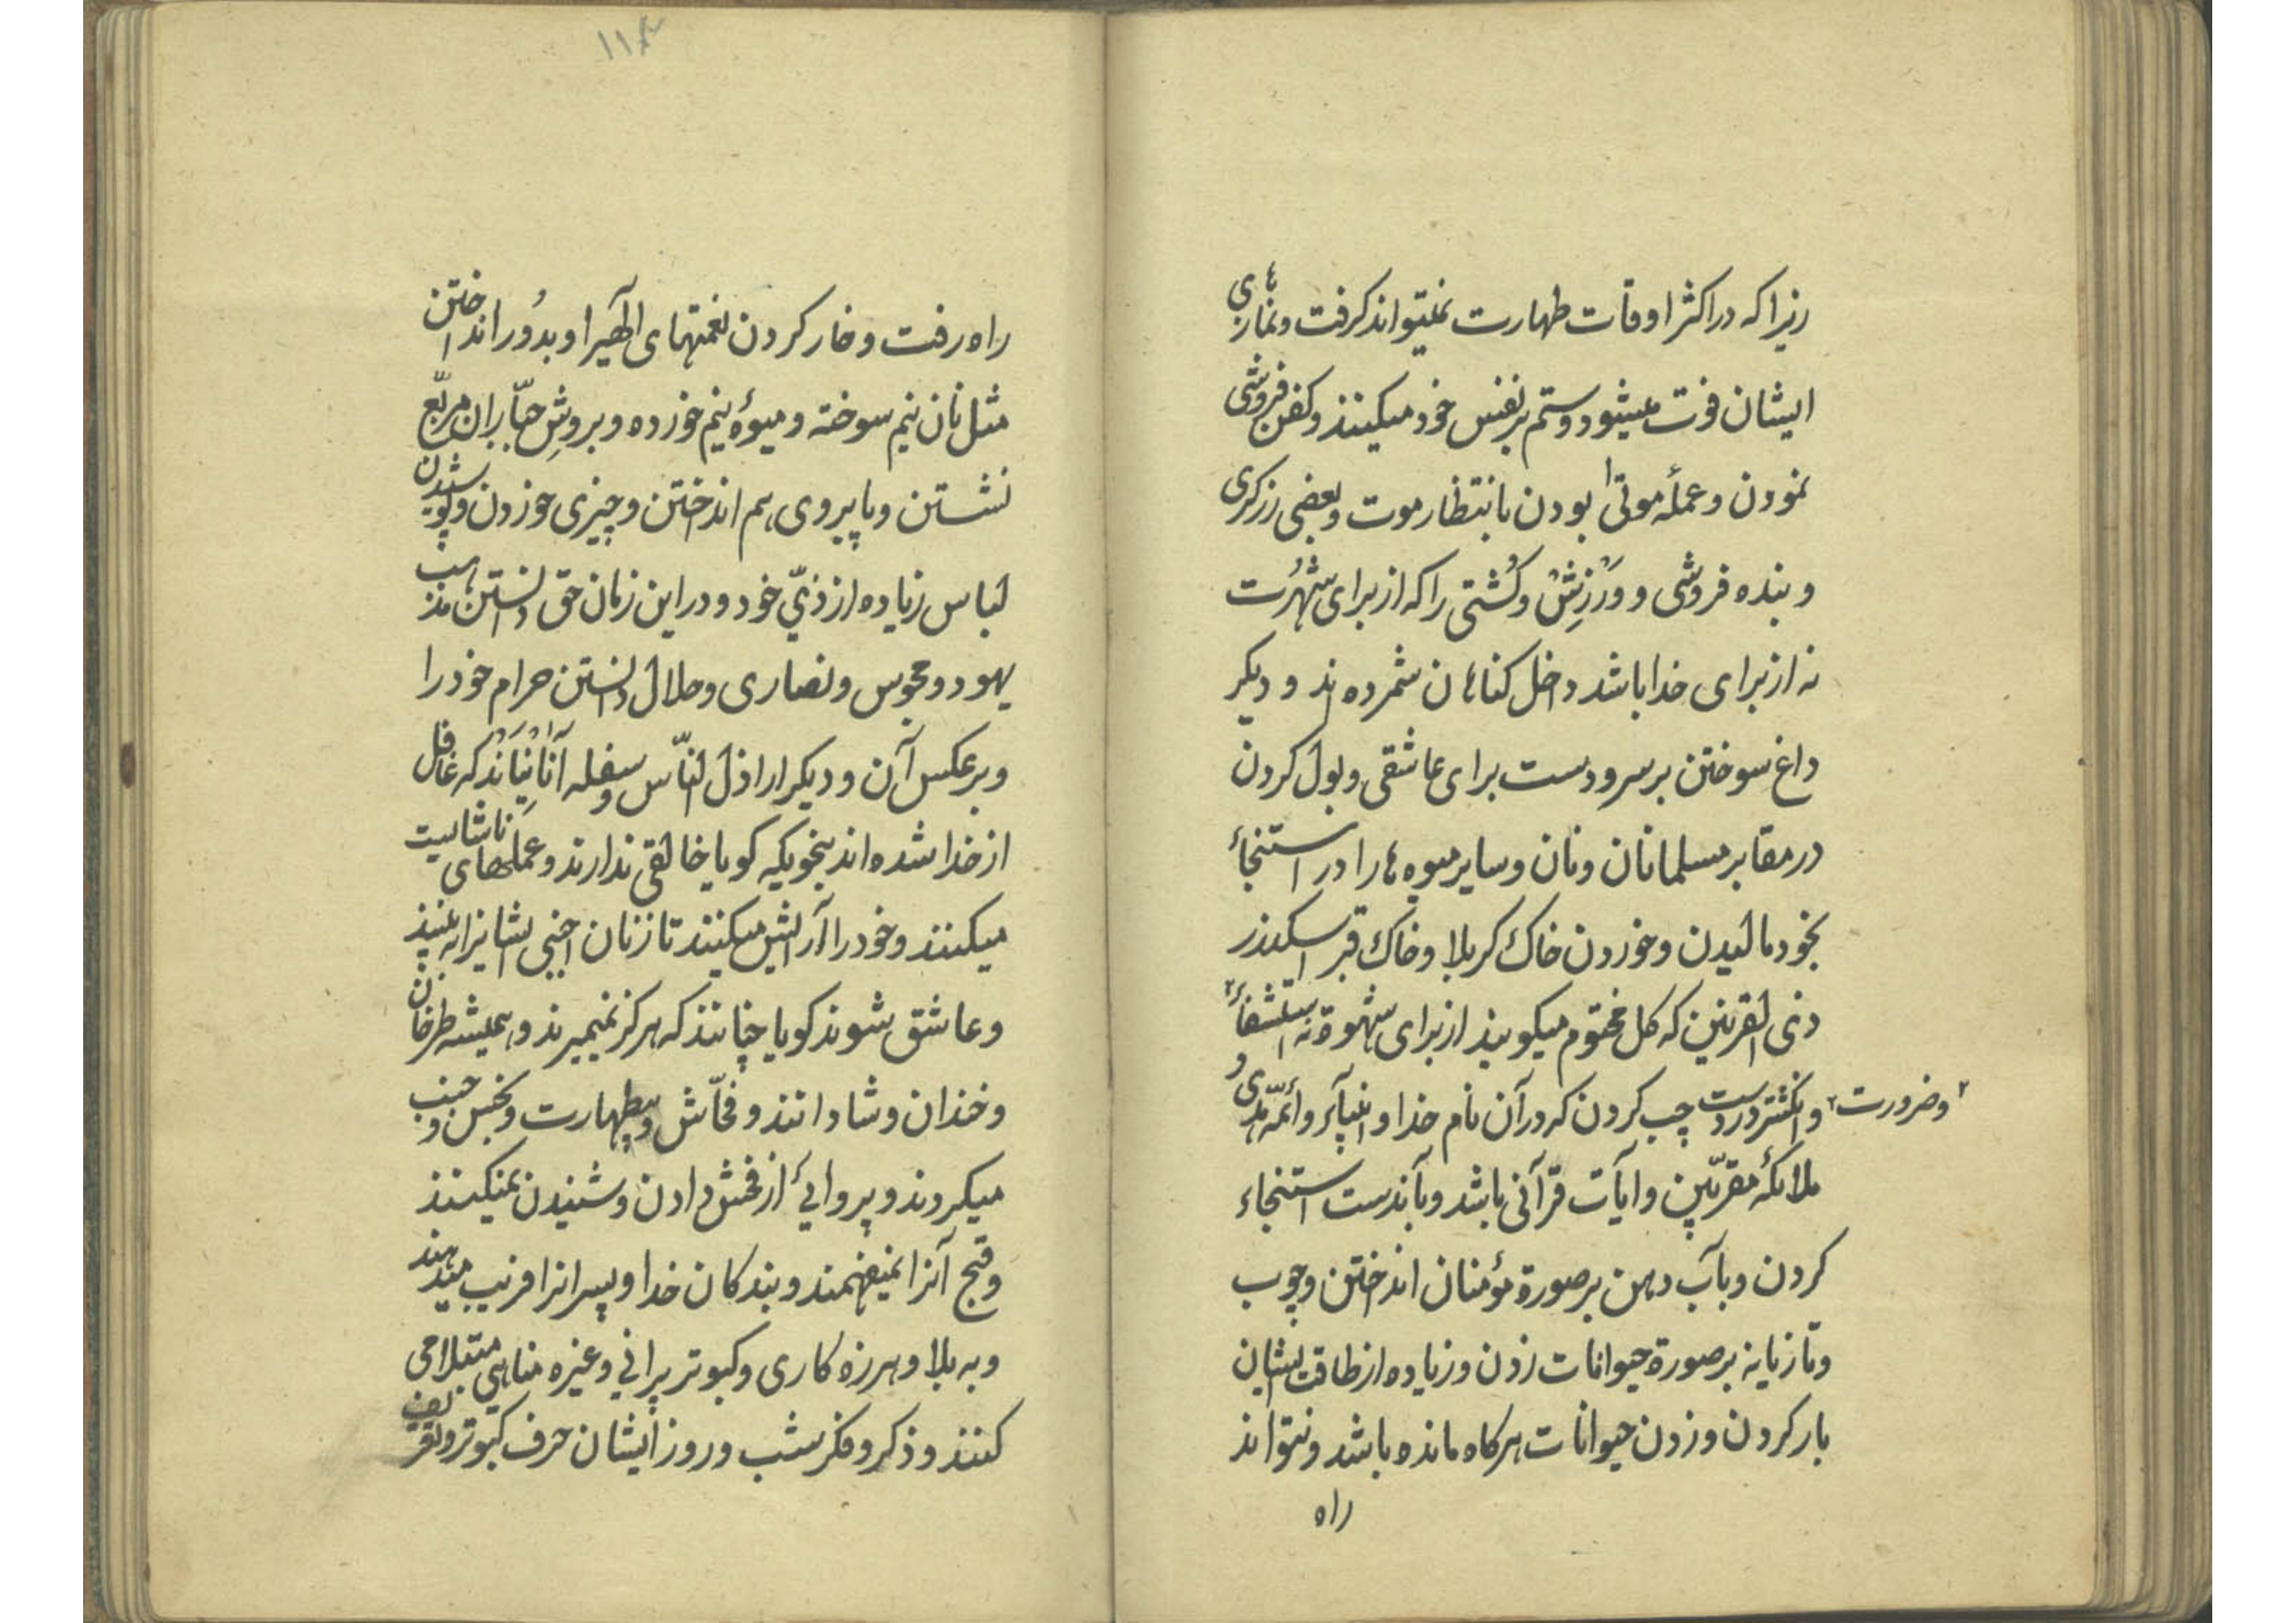 زیرا که در اکثر اوقات طهارت نمیتواند کرفت و نمازهای
ایشان فوت میشود و ستم بر نفس خود میکینند و کفن فروشی
نمودن و عملهٔ موتی بودن بانتظار موت و بعضی زرکری
و بنده فروشی و وَرْزِشْ و کُشتی را که از برای شهُرت
نه از برای خدا باشد داخل کناهان شمرده‌اند و دیکر
داغ سوختن بر سر و دست برای عاشقی و بول کردن
در مقابر مسلمانان و نان و سایر میوه‌ها را در استنجأ
بخود مالیدن و خوردن خاک کربلا و خاک قبر اسکندر
ذی القرنین که کل مختوم میکویند از برای شهوة نه استشفأ
۲ و ضرورت ۲
و انکشتر در دست چپ کردن که در آن نام خدا و انبیآء و أئمّه هدی و
ملائکهٔ مقرّبین و ایآت قرآنی باشد و بآندست استنجاء
کردن و بآب دهن بر صورة مؤمنان انداختن و چوب
و تازیانه بر صورة حیوانات زدن و زیاده از طاقت ایشان
بار کردن و زدن حیوانات هرکاه مانده باشد و نتواند
راه
۱۱۸
راه رفت و خار کردن نعمتهای الٓهیرا و بدُور انداختن
مثل نان نیم سوخته و میوهٔ نیم خورده و بروشِ جبّاران مربّع
نشستن و پا بیروی هم انداختن و چیزی خوردن و پوشیدن
لباس زیاده از ذیّ خود و در این زمان حق دانستن مذهب
یهود و مجوس و نصاری و حلال دانستن حرام خود را
و بر عکس آن و دیکر اراذل النّاس و سفله آنانیَانَد که غافل
از خدا شده‌اند بنحویکه کویا خالقی ندارند و عملهای ناشایست
میکینند و خود را آرایش میکینند تا زنان اجنبی ایشانرا به بینند
و عاشق شوند کویا چنانند که هرکز نمیمیرند و همیشه طرخان
و خندان و شادانند و فحّاش و بیطهارت و نجس و جنب
میکردند و پروایی از فحش دادن و شنیدن نمیکینند
و قبح آنرا نمیفهمند و بندکان خدا و پسرانرا فریب میدهند
و به بلا و هرزه کاری و کبوتر پرانی و غیره مناهی مبتلا می
کنند و ذکر و فکر شب و روز ایشان حرف کبوتر و تعریف